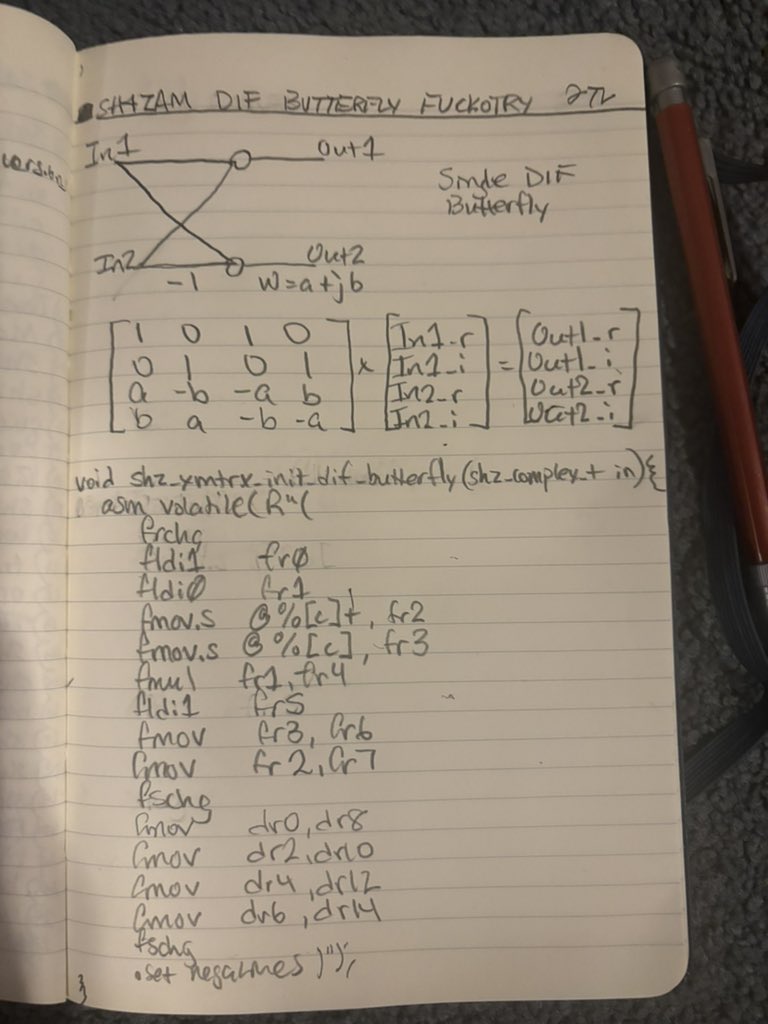 SH4ZAM DIF BUTTERFLY FUCKOTRY
In1 Out1
Single DIF
Butterfly
In2 Out2
-1 W=a+jb
[1 0 1 0] [In1_r] [Out1_r]
[0 1 0 1] x [In1_i] = [Out1_i]
[a -b -a b] [In2_r] [Out2_r]
[b a -b -a] [In2_i] [Out2_i]
void shz_xmtrx_init_dif_butterfly(shz_complex_t in){
asm volatile(R"(
frchg
fldi1 fr0
fldi0 fr1
fmov.s @%[c]+, fr2
fmov.s @%[c], fr3
fmul fr1, fr4
fldi1 fr5
fmov fr3, fr6
fmov fr2, fr7
fschg
fmov dr0, dr8
fmov dr2, dr10
fmov dr4, dr12
fmov dr6, dr14
fschg
.set )");
}